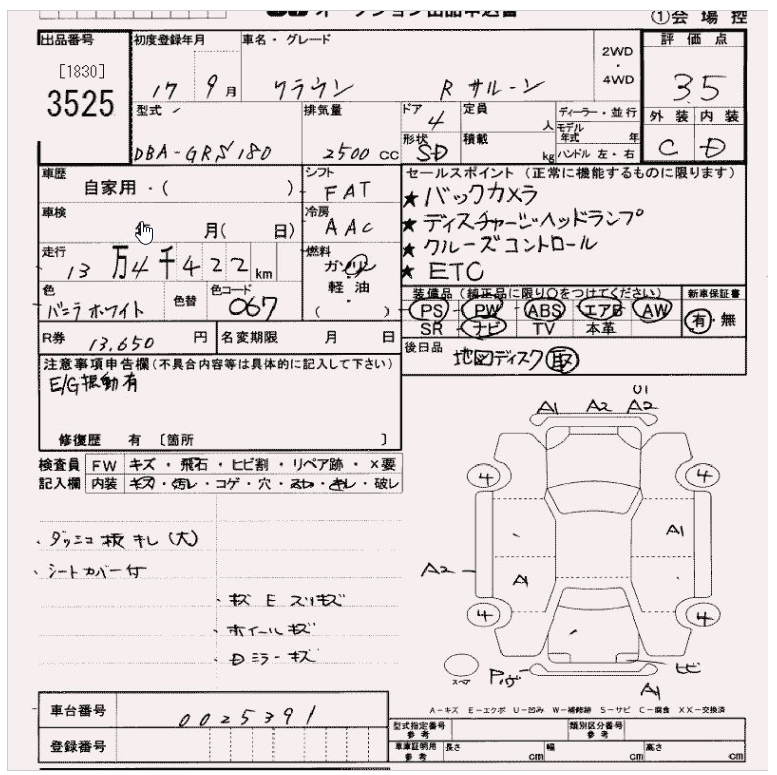 オークション出品申込書
①会場控
出品番号
[1830]
3525
初度登録年月
17 9月
車名・グレード
クラウン Rサルーン
2WD
・
4WD
評価点
35
外装 内装
C D
型式
DBA-GRS180
排気量
2500cc
ドア
4
形状
SD
定員
人
積載
kg
ディーラー・並行
モデル年式 年
ハンドル 左・右
車歴
自家用・( )
車検
月( 日)
走行
13万4千422km
色
バニラホワイト
色替
色コード
067
シフト
FAT
冷房
AAC
燃料
ガソリン
・
軽油
( )
セールスポイント (正常に機能するものに限ります)
★バックカメラ
★ディスチャージヘッドランプ
★クルーズコントロール
★ETC
装備品(純正品に限り○をつけてください)
PS・PW・ABS・エアB・AW
SR・ナビ・TV・本革
新車保証書
有・無
R券 13,650円
名変期限 月 日
後日品
地図ディスク 取
注意事項申告欄(不具合内容等は具体的に記入して下さい)
E/G振動有
修復歴 有 〔箇所 〕
検査員記入欄
FW キズ・飛石・ヒビ割・リペア跡・×要
内装 キズ・汚レ・コゲ・穴・スレ・キレ・破レ
・ダッシュ板キレ(大)
・シートカバー付
・キズ E スリキズ
・ホイールキズ
・Dミラーキズ
U1
A1 A2 A2
4 4
A1
A2
A
4 4
スペア
ヒビ
A1
A-キズ E-エクボ U-凹み W-補修跡 S-サビ C-腐食 XX-交換済
車台番号
0025391
登録番号
型式指定番号
参考
類別区分番号
参考
車庫証明用
参考
長さ cm
幅 cm
高さ cm